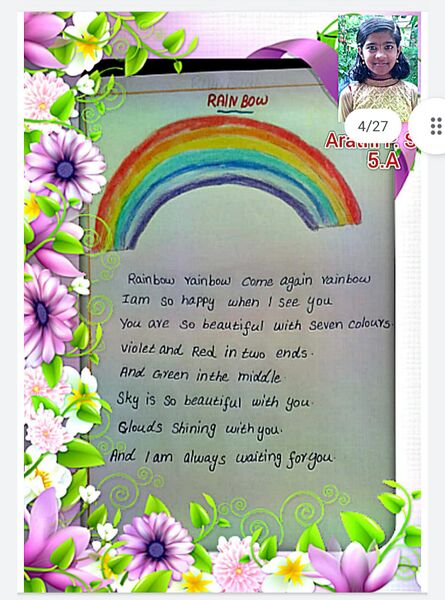 RAINBOW
4/27
5.A
Rainbow rainbow come again rainbow
Iam so happy when I see you
You are so beautiful with seven colours.
violet and Red in two ends.
And Green in the middle.
Sky is so beautiful with you.
Glouds Shining with you.
And I am always waiting for you.